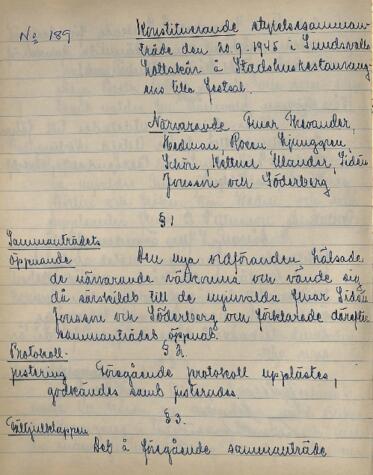 No 189
Konstituerande styrelsesamman-
träde den 20.9.1945 i Sundsvalls
Lottakår å Stadshusrestaurang-
ens lilla festsal.
Närvarande Fruar
Hedman, Rosen, Ljunggren,
Schön, Wilander, Sidén
Jonsson och Söderberg,
§ 1
Sammanträdets
öppnande Den nya ordföranden hälsade
de närvarande välkomna och vände sig
då särskildt till de nyinvalda fruar Sidén
Jonsson och Söderberg och förklarade därefter
sammanträdet öppnat.
§ 2.
Protokoll-
justering Föregående protokoll upplästes,
godkändes samt justerades.
§ 3.
Fältjulklappen
Det å föregående sammanträde